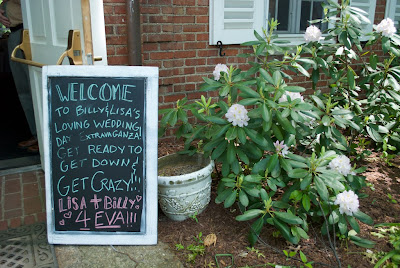 WELCOME
TO BILLY & LISA'S
LOVING WEDDING
DAY EXTRAVAGANZA!
GET READY TO
GET DOWN &
GET CRAZY!!!
LISA + BILLY
4 EVA!!!